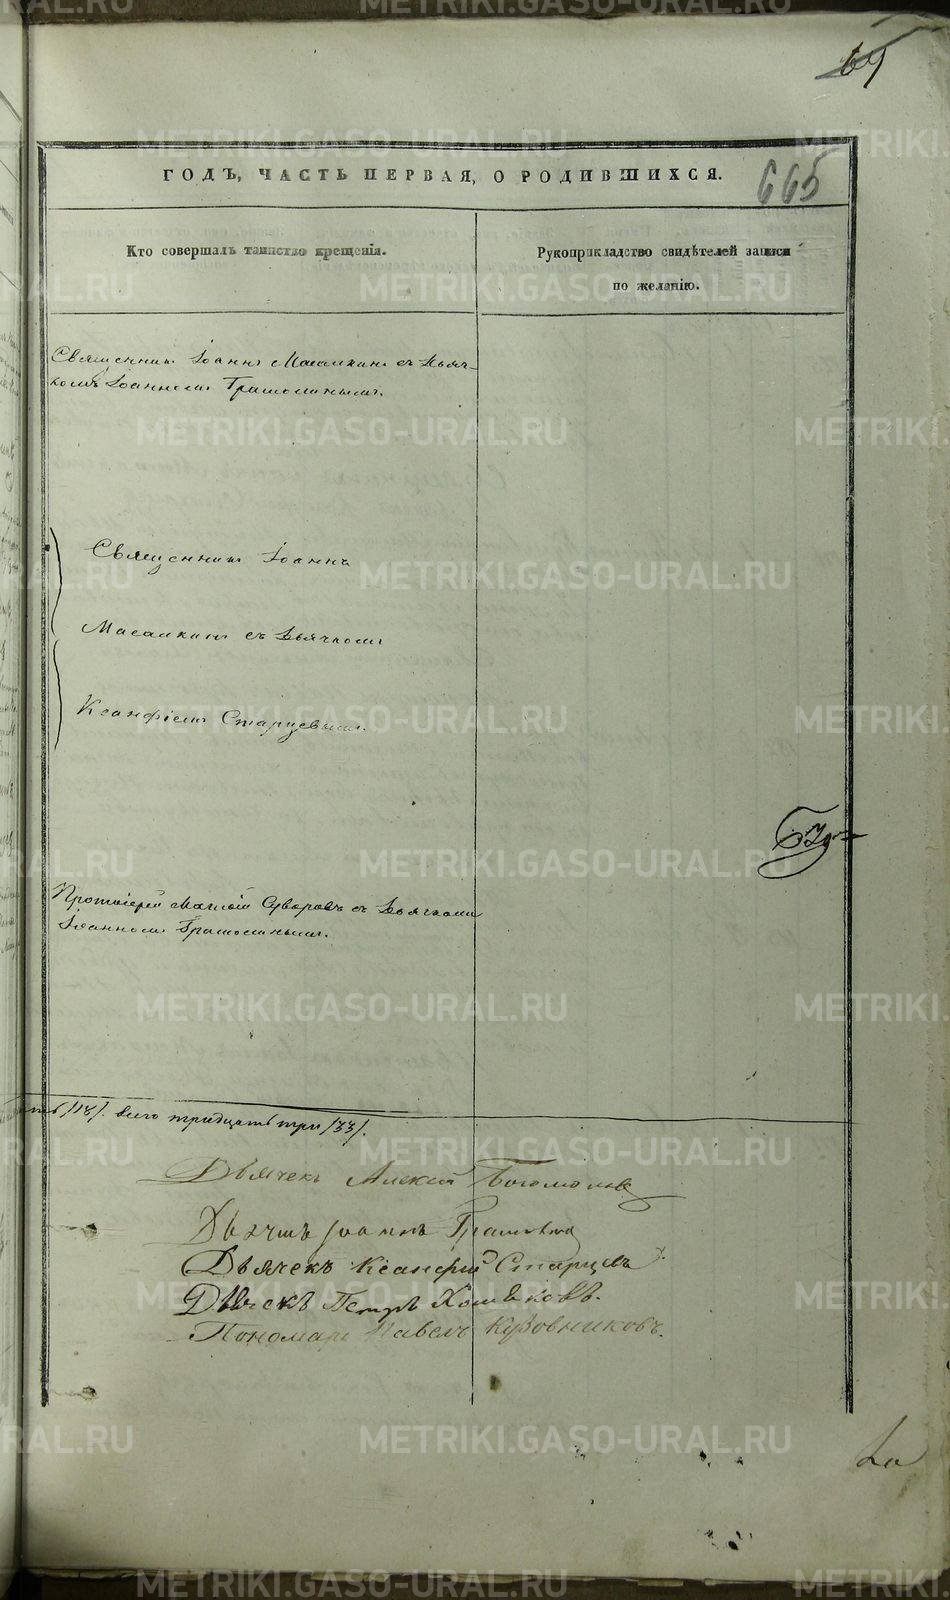 69
ГОДЪ, ЧАСТЬ ПЕРВАЯ, О РОДИВШИХСЯ.
665
Кто совершалъ таинство крещенія.
Рукоприкладство свидѣтелей записи
по желанію.
Священникъ Іоаннъ Масалкинъ съ Дьяч-
комъ Іоанномъ
Священникъ Іоаннъ
Масалкинъ съ Дьячкомъ
Ксанфіемъ Старцевымъ.
Протоіерей Матвій Суворовъ съ Дьячкомъ
Іоанномъ
/18/. всего тридцать три /33/.
Дьячекъ Алексій Богомоловъ
Дьячекъ Іоаннъ
Дьячекъ Ксанфій Старцевъ
Дьячекъ Петръ Хомяковъ.
Пономарь Павелъ Кузовниковъ.
METRIKI.GASO-URAL.RU